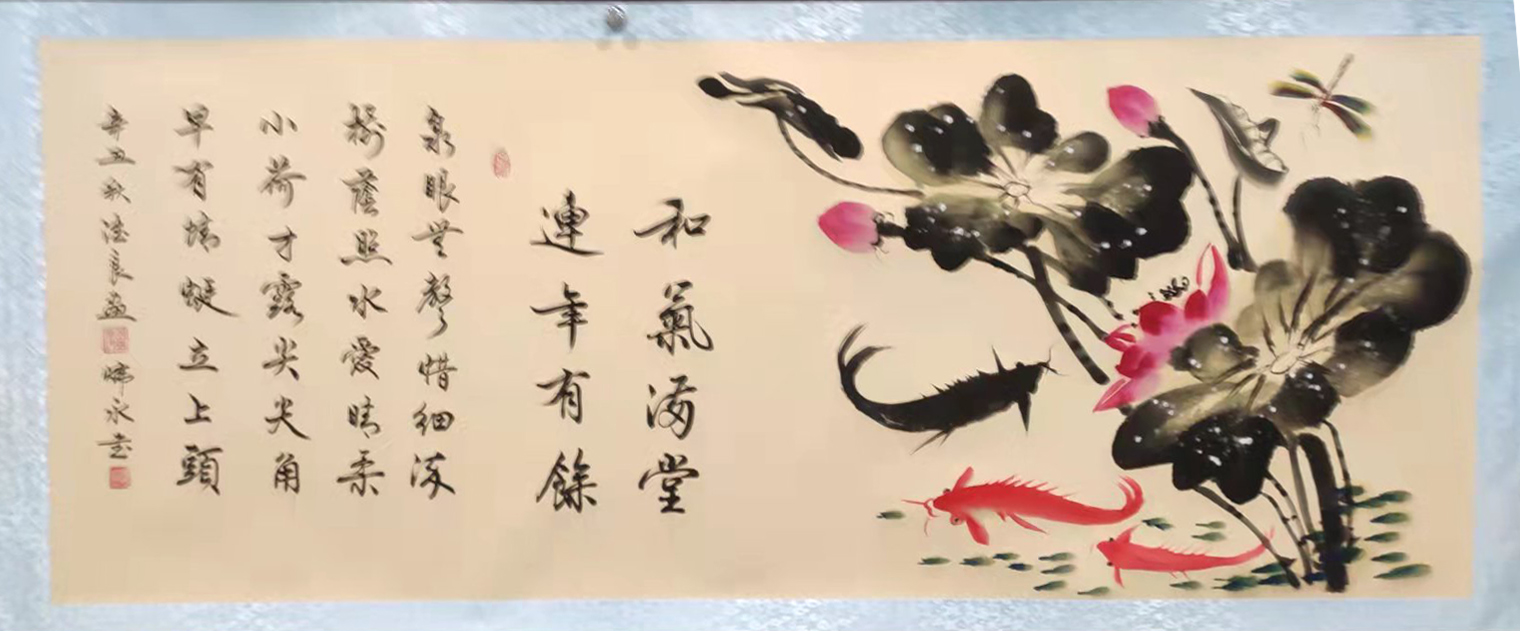 和氣滿堂
連年有餘
泉眼無聲惜細流
樹蔭照水愛晴柔
小荷才露尖尖角
早有蜻蜓立上頭
辛丑秋良畫永書